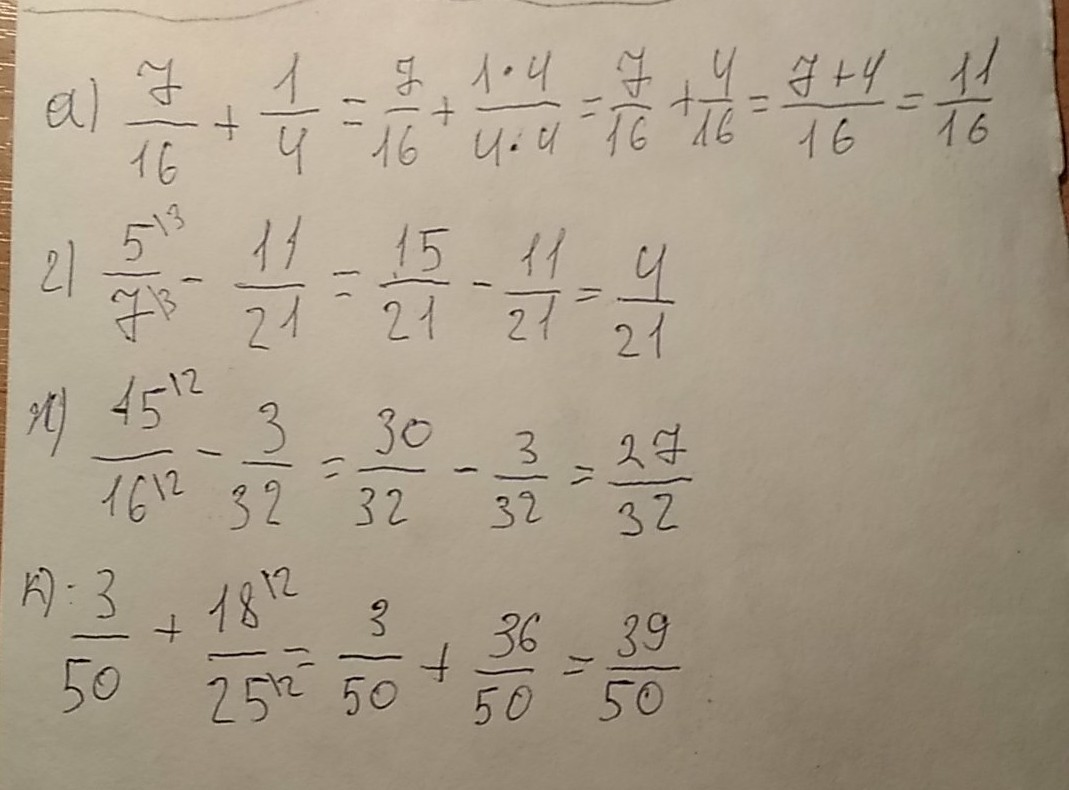 а) 7/16 + 1/4 = 7/16 + 1·4/4·4 = 7/16 + 4/16 = 7+4/16 = 11/16
г) 5\3/7\3 - 11/21 = 15/21 - 11/21 = 4/21
ж) 15\2/16\2 - 3/32 = 30/32 - 3/32 = 27/32
к) 3/50 + 18\2/25\2 = 3/50 + 36/50 = 39/50